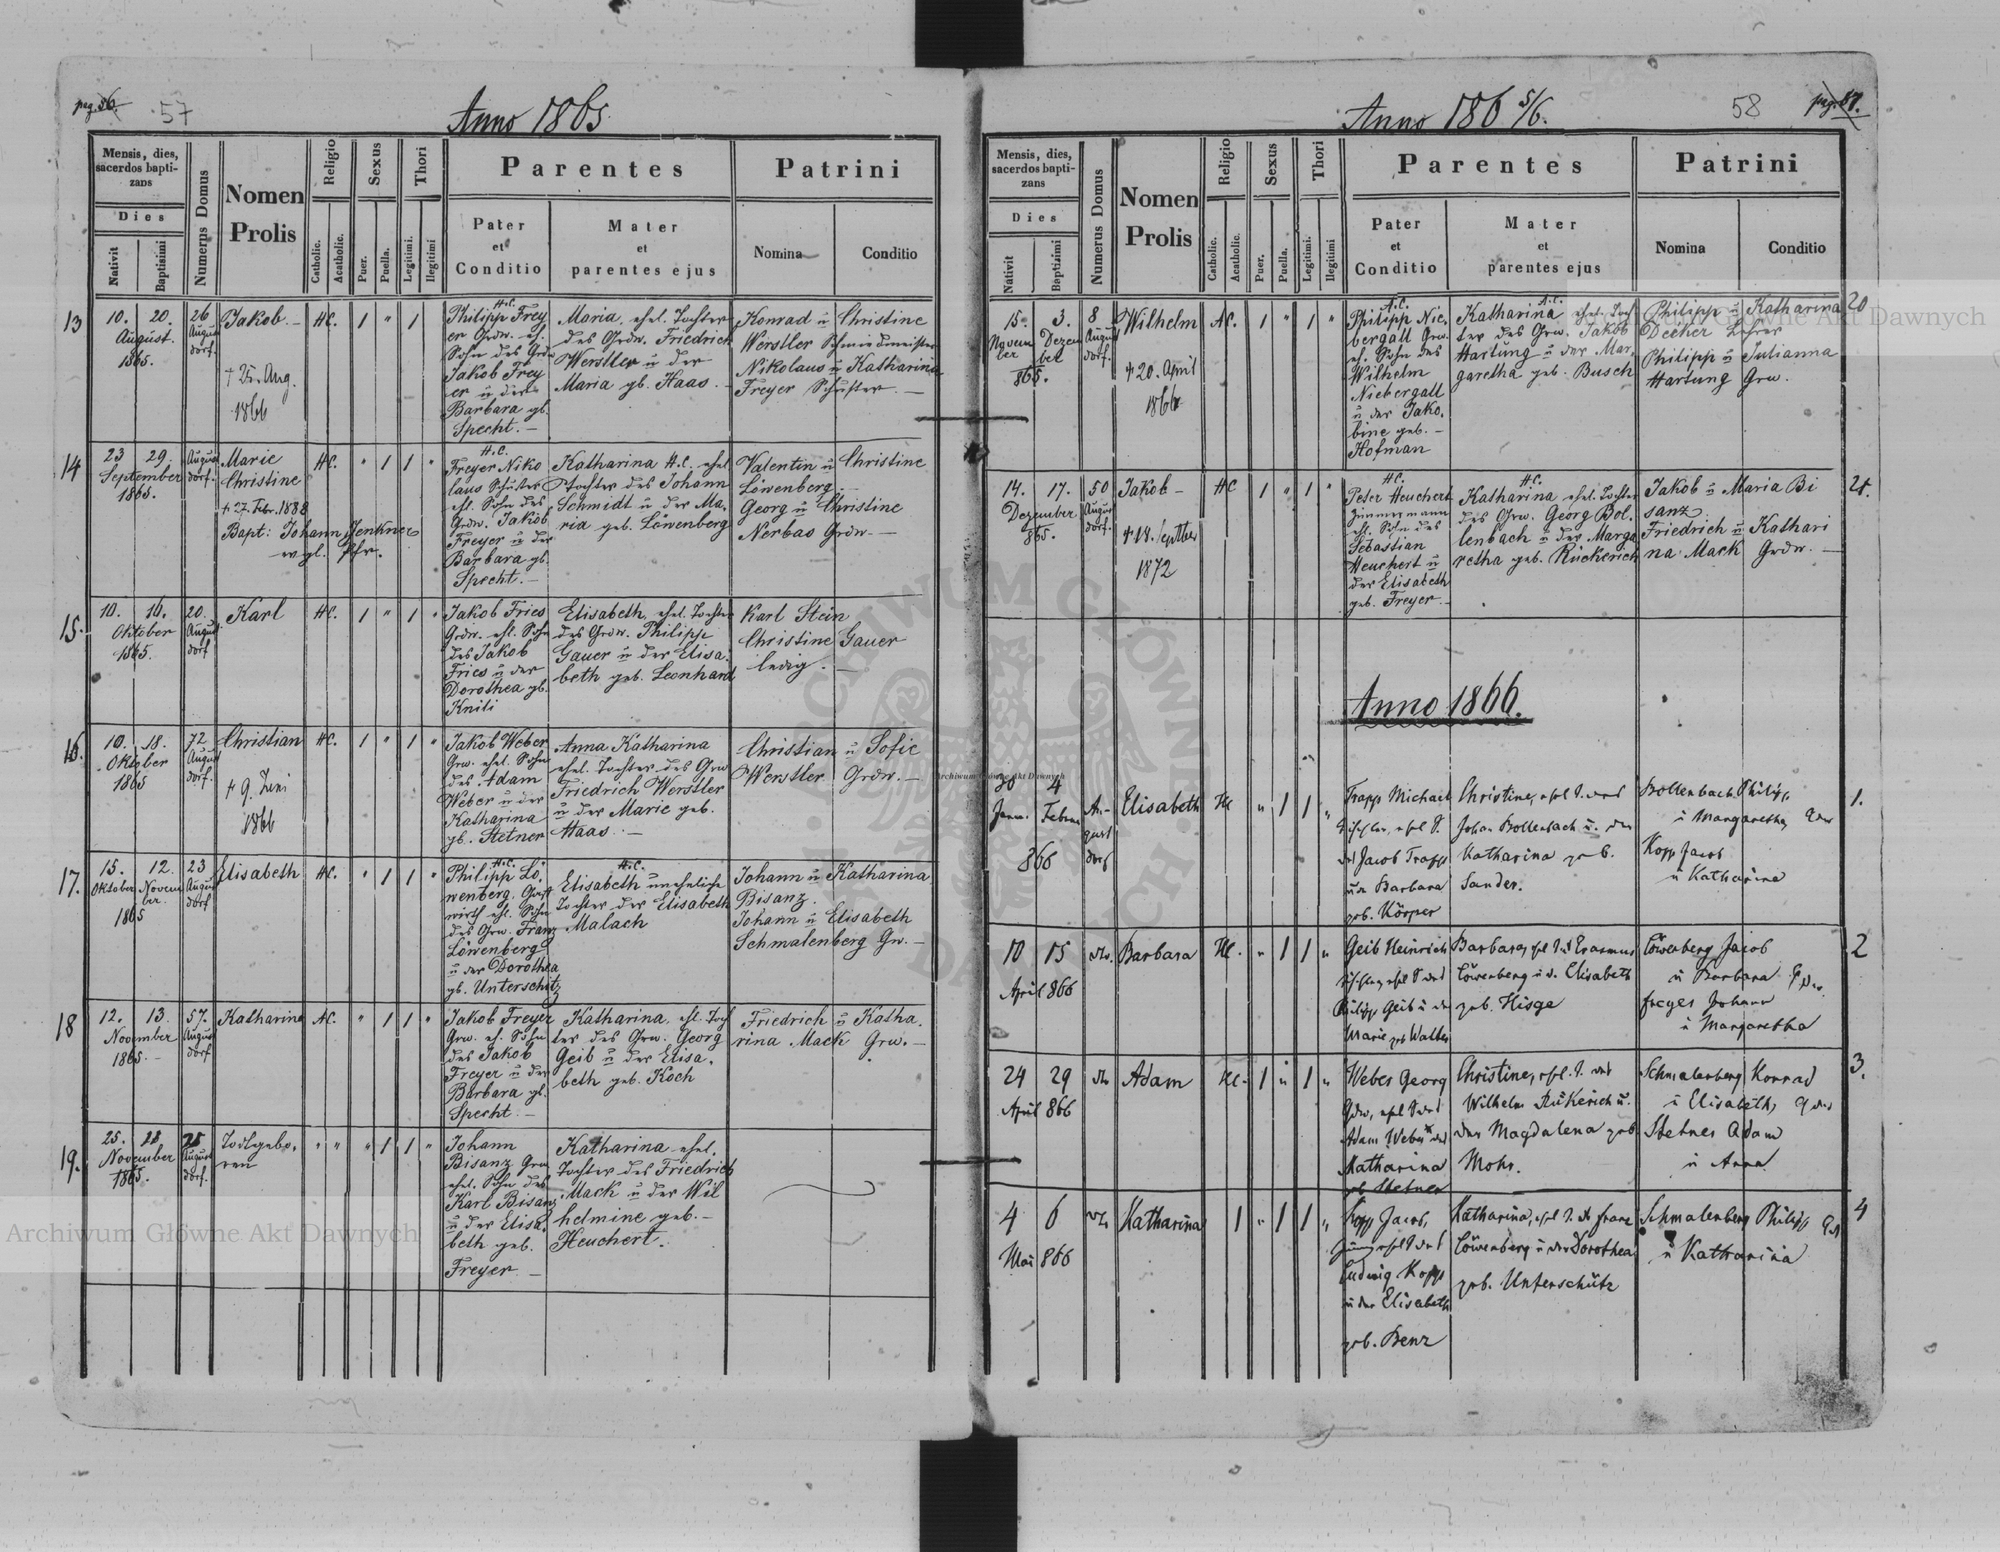 pag. 86.
57
Anno 1865.
Mensis, dies, sacerdos baptizans
Dies
Nativit
Baptisimi
Numerus Domus
Nomen Prolis
Religio
Catholic.
Acatholic.
Sexus
Puer.
Puella.
Thori
Legitimi.
Illegitimi
Parentes
Pater et Conditio
Mater et parentes ejus
Patrini
Nomina
Conditio
13
10. 20.
August.
1865.
26
August
dorf.
Jakob. –
+ 25. Aug.
1866
HC.
1 " 1
H.C.
Philipp Frey
er Grdw. eh.
Sohn des Grdw
Jakob Frey
er u der
Barbara gb.
Specht. –
Maria, ehel. Tochter
des Grdw. Friedrich
Werstler u der
Maria gb. Haas. –
Konrad u Christine
Werstler Schmiedmeister
Nikolaus u Katharina
Freyer Schuster. –
14
23 29.
September
1865.
August
dorf.
Marie
Christine
+ 27. Febr. 1888
Bapt: Johann Jenkner
evgl. Pfr.
HC.
" 1 1 "
H.C.
Freyer Niko
laus Schuster
ehl. Sohn des
Grdw. Jakob
Freyer u der
Barbara gb.
Specht. –
Katharina H.C. ehel.
Tochter des Johann
Schmidt u der Ma,
ria geb. Löwenberg
Valentin u Christine
Löwenberg. –
Georg u Christine
Nerbas Grdw. –
15.
10. 16.
Oktober
1865.
20.
August
dorf
Karl
HC.
1 " 1 "
Jakob Fries
Grdw. ehl. Sohn
des Jakob
Fries u der
Dorothea gb.
Knili
Elisabeth, ehel. Tochter
des Grdw. Philipp
Gauer u der Elisa,
beth geb. Leonhard
Karl Stein
Christine Gauer
ledig. –
16.
10. 18.
Oktober
1865
72
August
dorf.
Christian
+ 9. Juni
1866
HC.
1 " 1 "
Jakob Weber
Grw. ehel. Sohn
des Adam
Weber u der
Katharina
gb. Stetner
Anna Katharina
ehel. Tochter des Grw
Friedrich Werstler
u der Marie geb.
Haas. –
Christian u Sofie
Werstler Grdw. –
17.
15. 12.
Oktober Novem
ber.
1865
23
August
dorf
Elisabeth
HC.
" 1 1 "
H.C.
Philipp Lö,
wenberg, Gast
wirth ehl. Sohn
des Grw. Franz
Löwenberg
u der Dorothea
gb. Unterschitz
H.C.
Elisabeth uneheliche
Tochter der Elisabeth
Malach
Johann u Katharina
Bisanz.
Johann u Elisabeth
Schmalenberg Gw. –
18
12. 13.
November
1865. –
57.
August
dorf
Katharina
AC.
" 1 1 "
Jakob Freyer
Grw. eh. Sohn
des Jakob
Freyer u der
Barbara gb.
Specht. –
Katharina, ehl. Toch
ter des Grw. Georg
Geib u der Elisa,
beth geb. Koch
Friedrich u Katha,
rina Mack Grw. –
19.
25. 28
November
1865.
25
August
dorf.
Todtgebo,
ren
" " " 1 1 "
Johann
Bisanz Grw
ehel. Sohn des
Karl Bisanz
u der Elisa,
beth geb.
Freyer –
Katharina ehel.
Tochter des Friedrich
Mack u der Wil
helmine geb. –
Heuchert.
pag. 87.
58
Anno 186 5/6.
Mensis, dies, sacerdos baptizans
Dies
Nativit
Baptisimi
Numerus Domus
Nomen Prolis
Religio
Catholic.
Acatholic.
Sexus
Puer.
Puella.
Thori
Legitimi.
Illegitimi
Parentes
Pater et Conditio
Mater et parentes ejus
Patrini
Nomina
Conditio
15. 3.
Novem Dezem
ber ber
865.
8
August
dorf.
Wilhelm
+ 20. April
1866
AC.
1 " 1 "
A.C.
Philipp Nie,
bergall Grw.
eh. Sohn des
Wilhelm
Niebergall
u der Jako,
bine geb. –
Hofman
A.C.
Katharina ehel. Toch
ter des Grw. Jakob
Hartung u der Mar,
garetha geb. Busch
Philipp u Katharina
Decker Lehrer
Philipp u Julianna
Hartung Grw.
20
14. 17.
Dezember
865.
50
August
dorf.
Jakob –
+ 18. Septber
1872
HC
1 " 1 "
H.C.
Peter Heuchert
Zimmermann
ehl. Sohn des
Sebastian
Heuchert u
der Elisabeth
geb. Freyer. –
H.C.
Katharina ehel. Tochter
des Grw. Georg Bol,
lenbach u der Marga
retha geb. Rückerich
Jakob u Maria Bi
sanz
Friedrich u Kathari
na Mack Grdw. –
21.
Anno 1866.
30 4
Jann. Februar
866
Au-
gust
dorf
Elisabeth
HC
" 1 1 "
Trapp Michael
Tischler, ehel S.
des Jacob Trapp
u der Barbara
geb. Körper
Christine, ehel T. des
Johan Bollenbach u. der
Katharina geb.
Sander.
Bollenbach Philipp
u Margaretha, Grdw
Kopp Jacob
u Katharina
1.
10 15
April 866
Barbara
HC.
" 1 1 "
Geib Heinrich
Tischler, ehel S des
Philipp Geib u der
Marie geb Walter
Barbara, ehl T. d Erasmus
Löwenberg u d. Elisabeth
geb. Hisge
Löwenberg Jacob
u Barbara Grdw.
Freyer Johann
u Margaretha
2
24 29
April 866
Adam
HC.
1 " 1 "
Weber Georg
Grdw, ehel S des
Adam Weber u der
Katharina
geb Stetner
Christine, ehl. T. des
Wilhelm Rükerich u.
der Magdalena geb
Mohr.
Schmalenberg Konrad
u Elisabeth, Grdw
Stetner Adam
u Anna
3.
4 6
Mai 866
Katharina
1 " 1 1 "
Kopp Jacob,
Ludwig Kopp
u der Elisabeth
geb. Benz
Katharina, ehel T. d Franz
Löwenberg u der Dorothea
geb. Unterschütz
Schmalenberg Philipp Grd
u Katharina
4
Archiwum Główne Akt Dawnych
Archiwum Główne Akt Dawnych
Archiwum Główne Akt Dawnych
ARCHIWUM GŁÓWNE AKT DAWNYCH